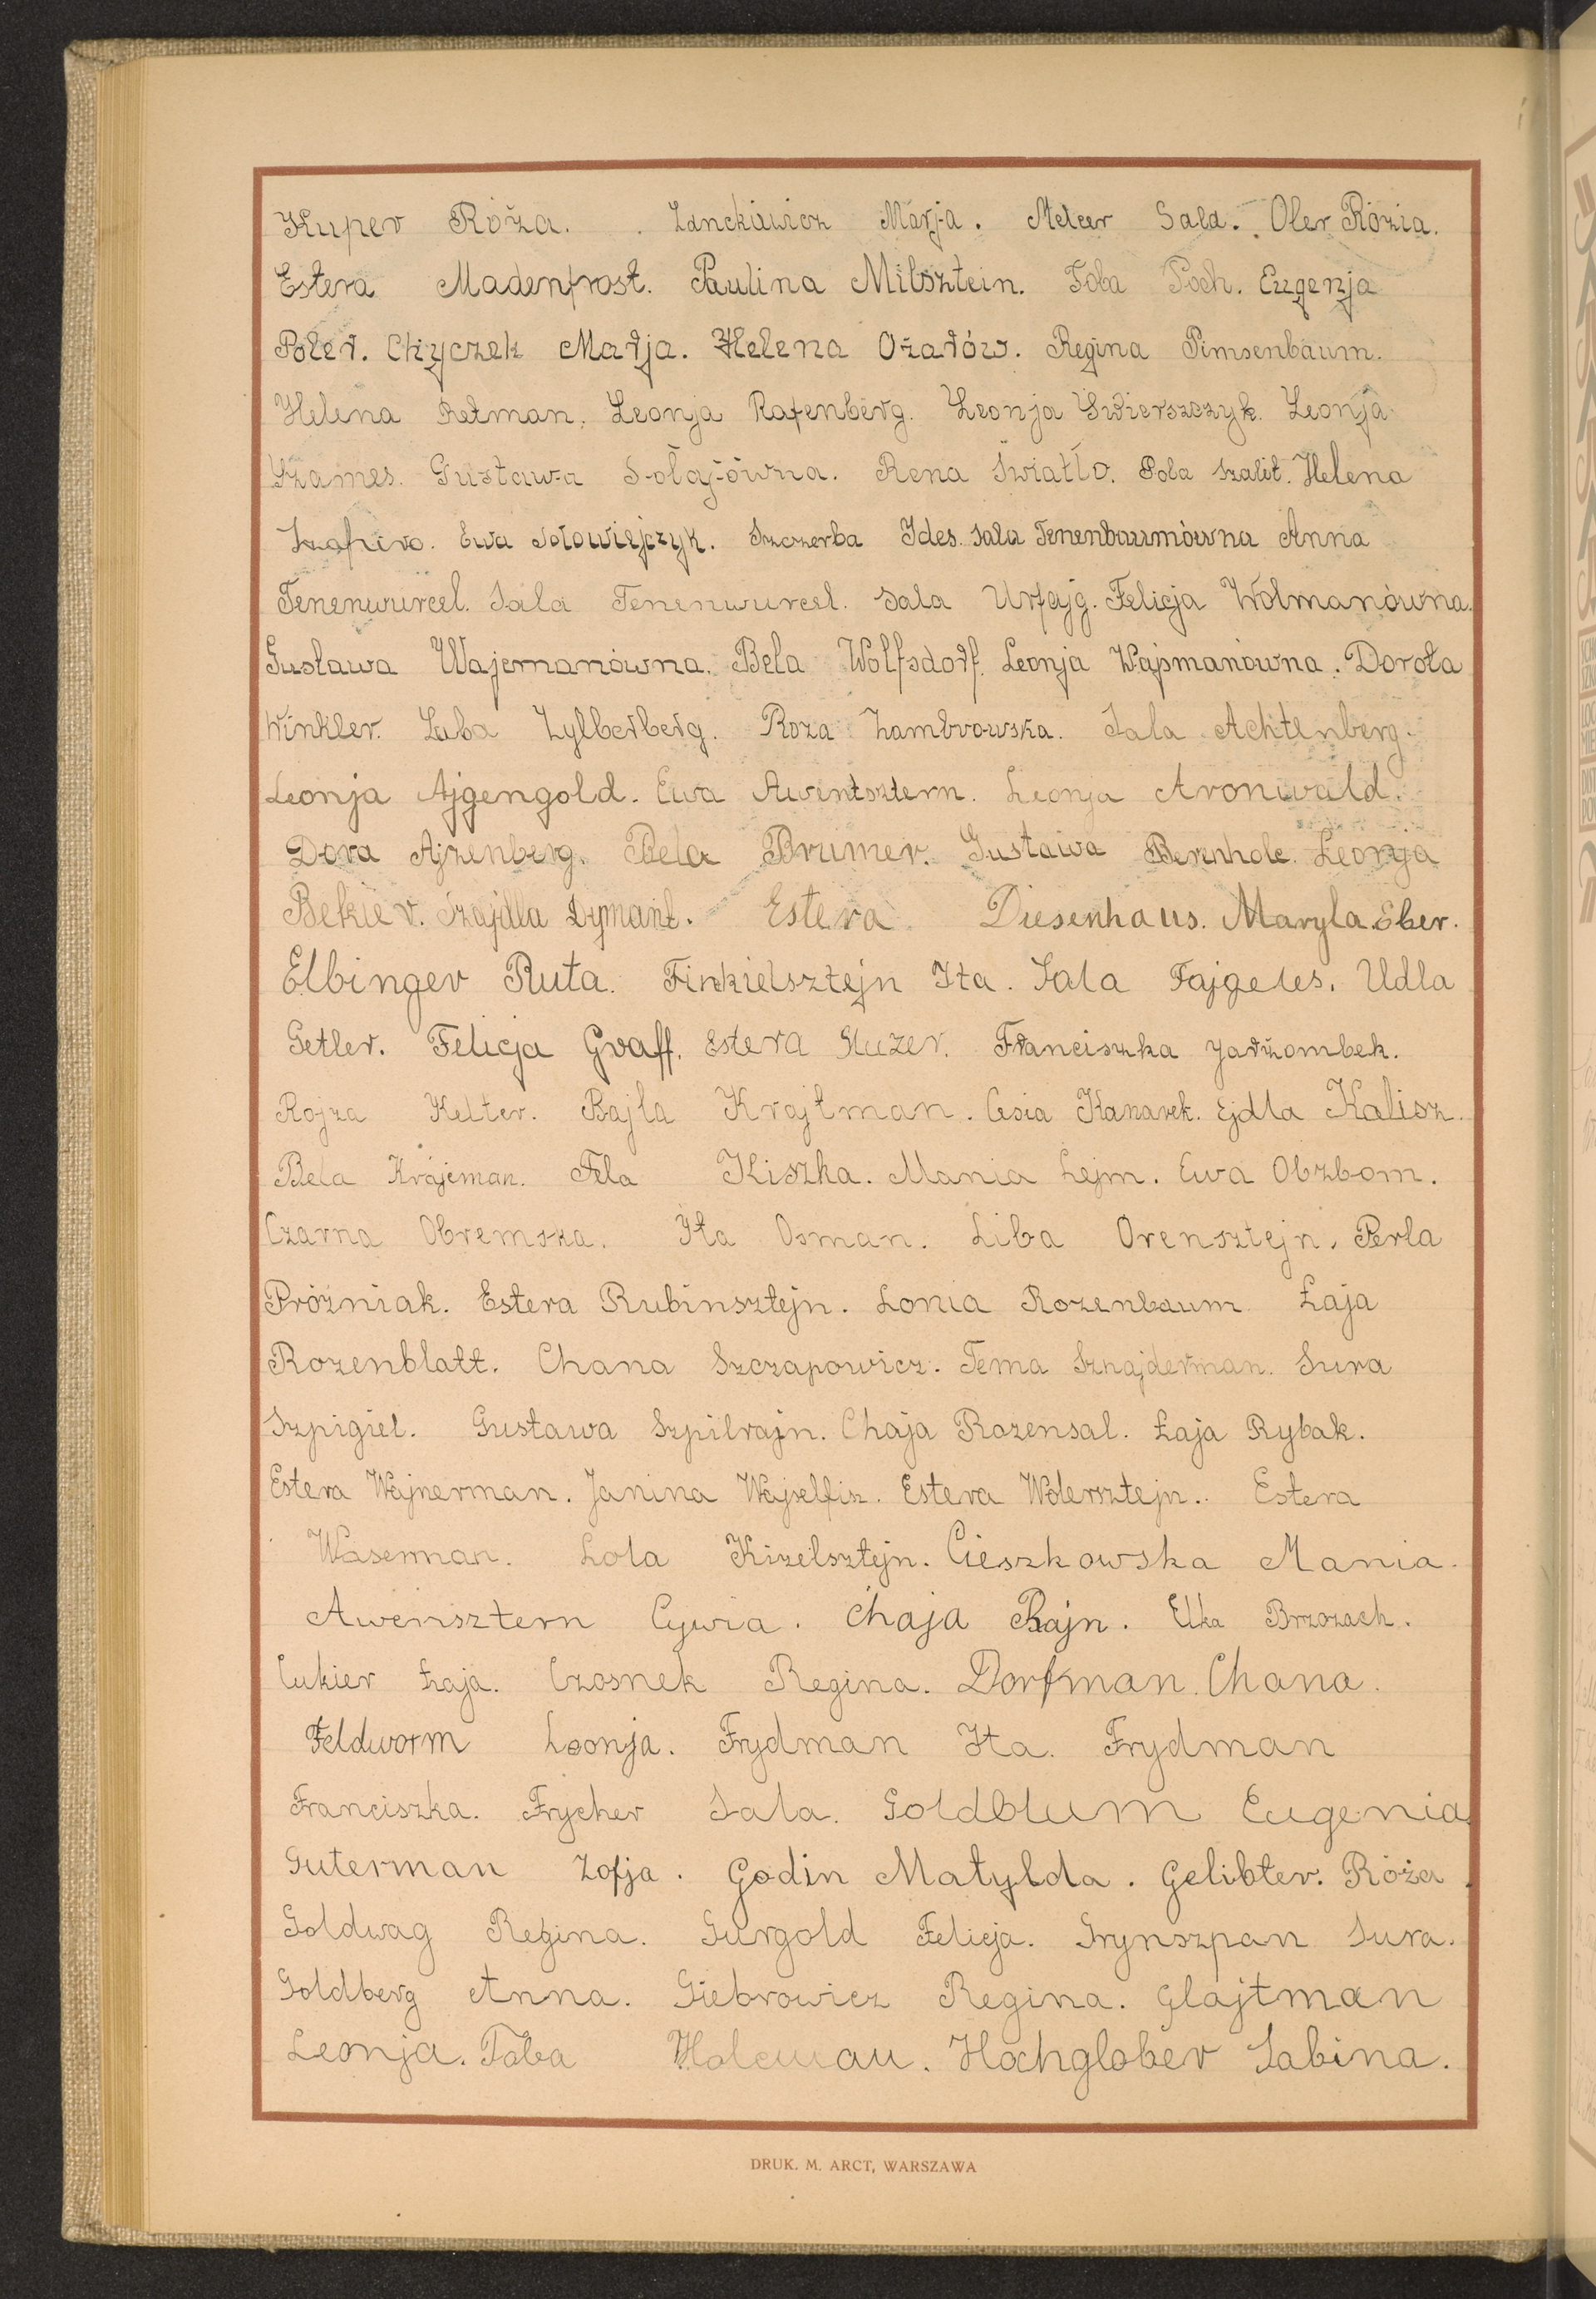 Kuper Róża. Lanckiewicz Marja. Melcer Sala. Oler Rózia.
Estera Madenfrost. Paulina Milsztein. Toba Poch. Eugenja
Poler. Chyczek Marja. Helena Ożarów. Regina Pimsenbaum.
Helena Retman. Leonja Rafenberg. Leonja Świerszczyk. Leonja
Szames. Gustawa Sołajówna. Rena Światło. Pola Szalit. Helena
Szafiro. Ewa Sołowiejczyk. Szczerba Ides. Sala Tenenbaumówna Anna
Tenenwurcel. Sala Tenenwurcel. Sala Urfajg. Felicja Wolmanówna.
Gustawa Wajcmanówna. Bela Wolfsdorf. Leonja Wajsmanówna. Dorota
Winkler. Luba Zylberberg. Roza Zambrowska. Sala Achtenberg.
Leonja Ajgengold. Ewa Awentsztern. Leonja Aronwald.
Dora Ajzenberg. Bela Brumer. Gustawa Berenholc. Leonja
Bekier. Szajdla Dymant. Estera Diesenhaus. Maryla Eber.
Elbinger Ruta. Finkielsztejn Ita. Sala Fajgeles. Udla
Getler. Felicja Graff. Estera Gluzer. Franciszka Jarzombek.
Rojza Kelter. Bajla Krajtman. Cesia Kanarek. Ejdla Kalisz.
Bela Krajcman. Fela Kiszka. Mania Lejm. Ewa Obzbom.
Czarna Obremska. Ita Osman. Liba Orensztejn. Perla
Próżniak. Estera Rubinsztejn. Lonia Rozenbaum. Łaja
Rozenblatt. Chana Szczapowicz. Tema Sznajderman. Sura
Szpigiel. Gustawa Szpilrajn. Chaja Rozensal. Łaja Rybak.
Estera Wajnerman. Janina Wajselfisz. Estera Wolersztejn. Estera
Waserman. Lola Kizelsztejn. Cieszkowska Mania.
Awensztern Cywia. Chaja Rajn. Elka Brzozach.
Cukier Łaja. Czosnek Regina. Dorfman Chana.
Feldworm Leonja. Frydman Ita. Frydman
Franciszka. Frycher Sala. Goldblum Eugenia.
Guterman Zofja. Godin Matylda. Gelibter. Róża.
Goldwag Regina. Gurgold Felicja. Grynszpan Sura.
Goldberg Anna. Giebrowicz Regina. Glajtman
Leonja. Toba Holcman. Hochglober Sabina.
DRUK. M. ARCT, WARSZAWA